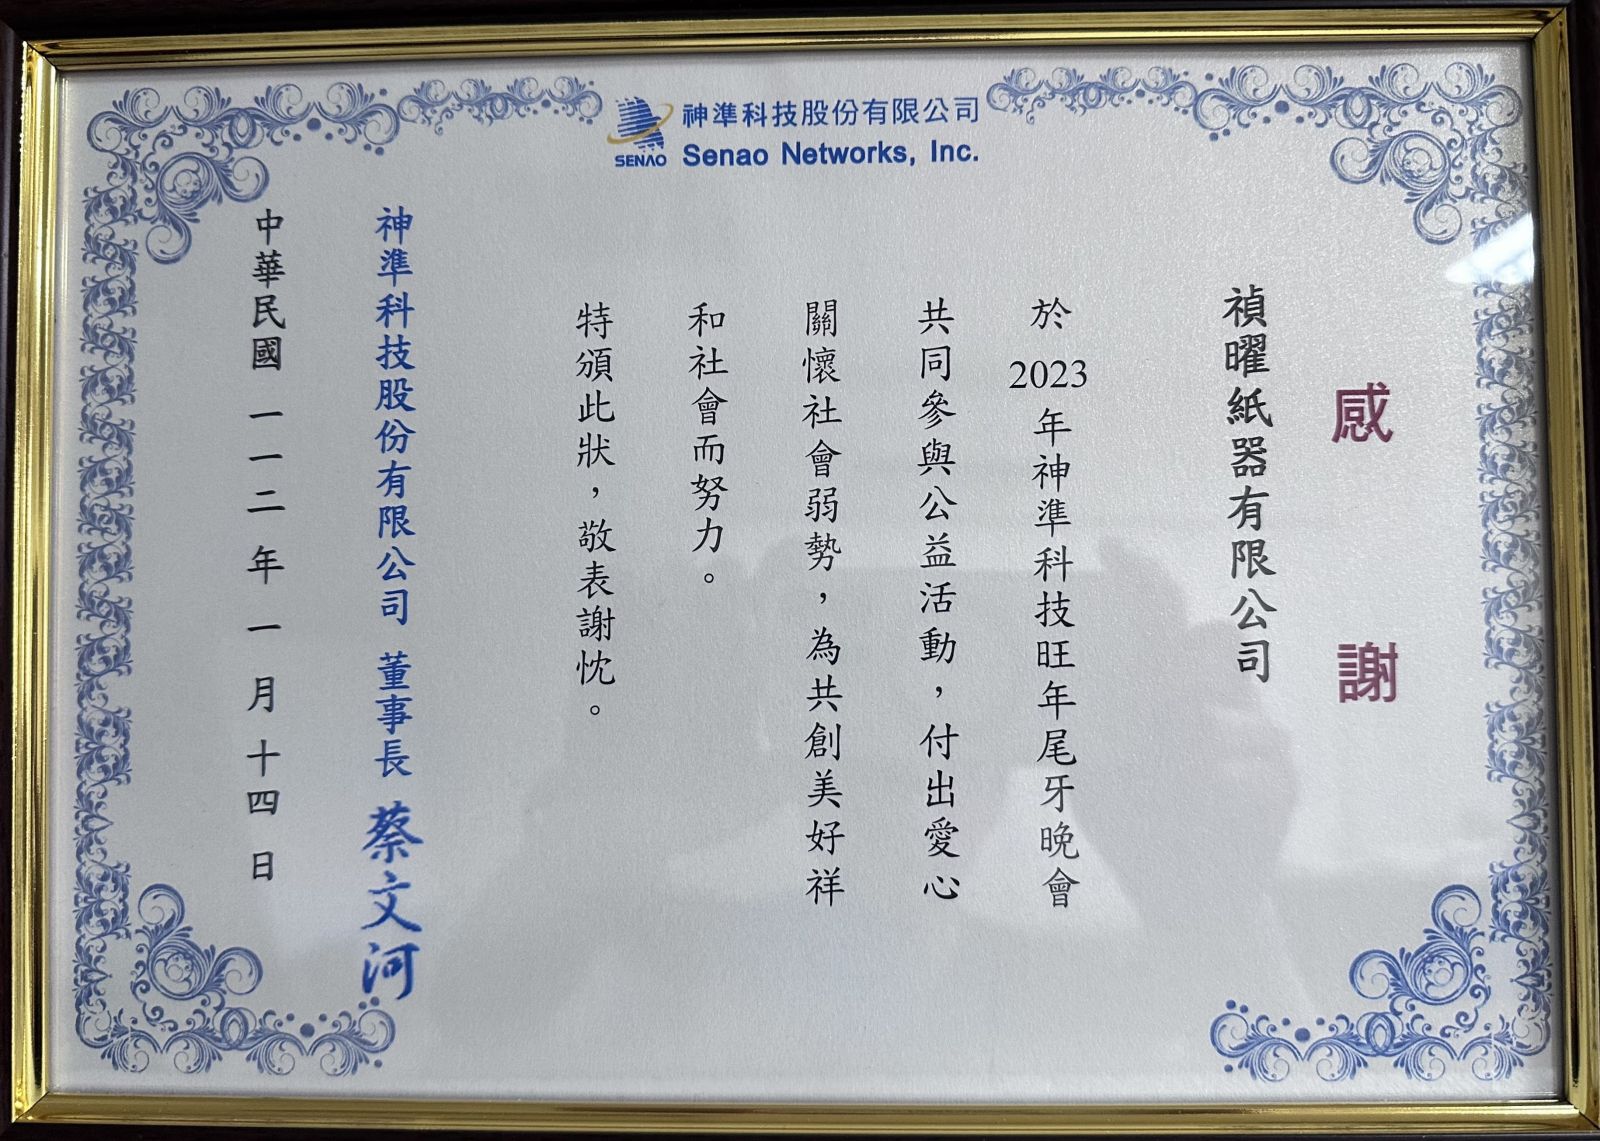 SENAO
神準科技股份有限公司
Senao Networks, Inc.
感謝
禎曜紙器有限公司
於2023年神準科技旺年尾牙晚會
共同參與公益活動，付出愛心
關懷社會弱勢，為共創美好祥
和社會而努力。
特頒此狀，敬表謝忱。
神準科技股份有限公司 董事長 蔡文河
中華民國 一一二 年 一 月 十四 日